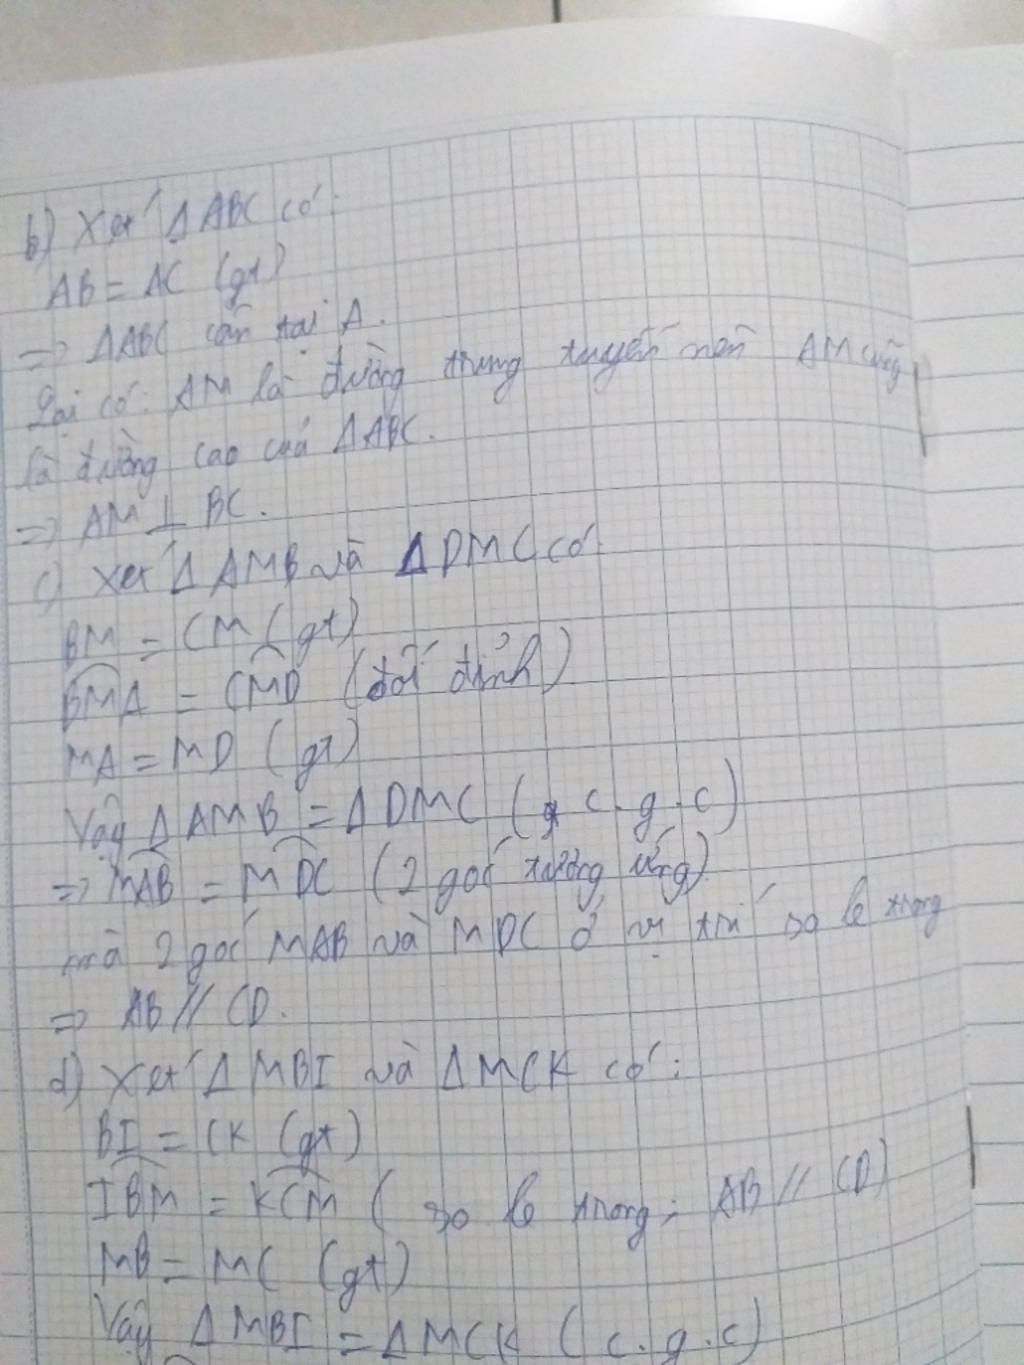 b) Xét ΔABC có:
AB = AC (gt)
=> ΔABC cân tại A.
Lại có: AM là đường trung tuyến nên AM cũng
là đường cao của ΔABC.
=> AM ⊥ BC.
c) Xét ΔAMB và ΔDMC có:
BM = CM (gt)
BMA = CMD (đối đỉnh)
MA = MD (gt)
Vậy ΔAMB = ΔDMC (c.g.c)
=> MAB = MDC (2 góc tương ứng)
mà 2 góc MAB và MDC ở vị trí so le trong
=> AB // CD.
d) Xét ΔMBI và ΔMCK có:
BI = CK (gt)
IBM = KCM (so le trong; AB // CD)
MB = MC (gt)
Vậy ΔMBI = ΔMCK (c.g.c)